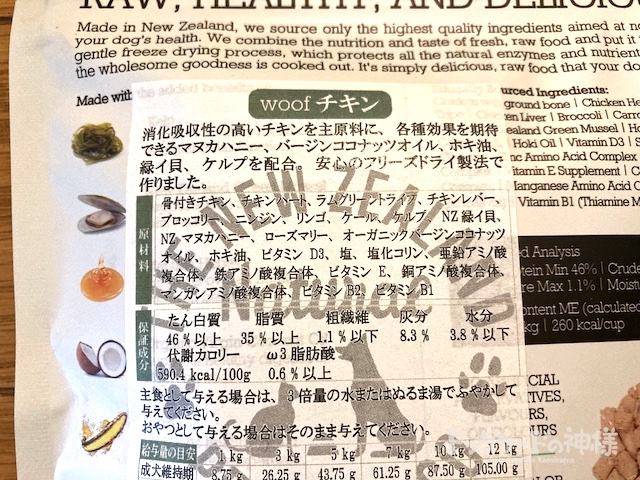 RAW, HEALTHY, AND DELICIOUS
Made in New Zealand, we source only the highest quality ingredients aimed at
your dog's health. We combine the nutrition and taste of fresh, raw food and put it
gentle freeze drying process, which protects all the natural enzymes and
the wholesome goodness is cooked out. It's simply delicious, raw food that your
Made with the added
woof チキン
消化吸収性の高いチキンを主原料に、各種効果を期待
できるマヌカハニー、バージンココナッツオイル、ホキ油、
緑イ貝、ケルプを配合。安心のフリーズドライ製法で
作りました。
原材料
骨付きチキン、チキンハート、ラムグリーントライプ、チキンレバー、
ブロッコリー、ニンジン、リンゴ、ケール、ケルプ、NZ 緑イ貝、
NZ マヌカハニー、ローズマリー、オーガニックバージンココナッツ
オイル、ホキ油、ビタミン D3、塩、塩化コリン、亜鉛アミノ酸
複合体、鉄アミノ酸複合体、ビタミン E、銅アミノ酸複合体、
マンガンアミノ酸複合体、ビタミン B2、ビタミン B1
保証成分
たん白質 脂質 粗繊維 灰分 水分
46 % 以上 35 % 以上 1.1 % 以下 8.3 % 3.8 % 以下
代謝カロリー ω3 脂肪酸
590.4 kcal/100g 0.6 % 以上
主食として与える場合は、3 倍量の水またはぬるま湯でふやかして
与えてください。
おやつとして与える場合はそのまま与えてください。
給与量の目安 1 kg 3 kg 5 kg 7 kg 10 kg 12 kg
成犬維持期 8.75 g 26.25 g 43.75 g 61.25 g 87.50 g 105.00 g
NEW ZEALAND
Natural
urced Ingredients:
ground bone | Chicken
en Liver | Broccoli |
ealand Green Mussel |
Hoki Oil | Vitamin D3 |
nc Amino Acid Complex
Vitamin E Supplement |
anganese Amino Acid
Vitamin B1 (Thiamine
d Analysis
tein Min 46% |
re Max 1.1% |
ontent ME (calculated
kg | 260 kcal/cup
の神様